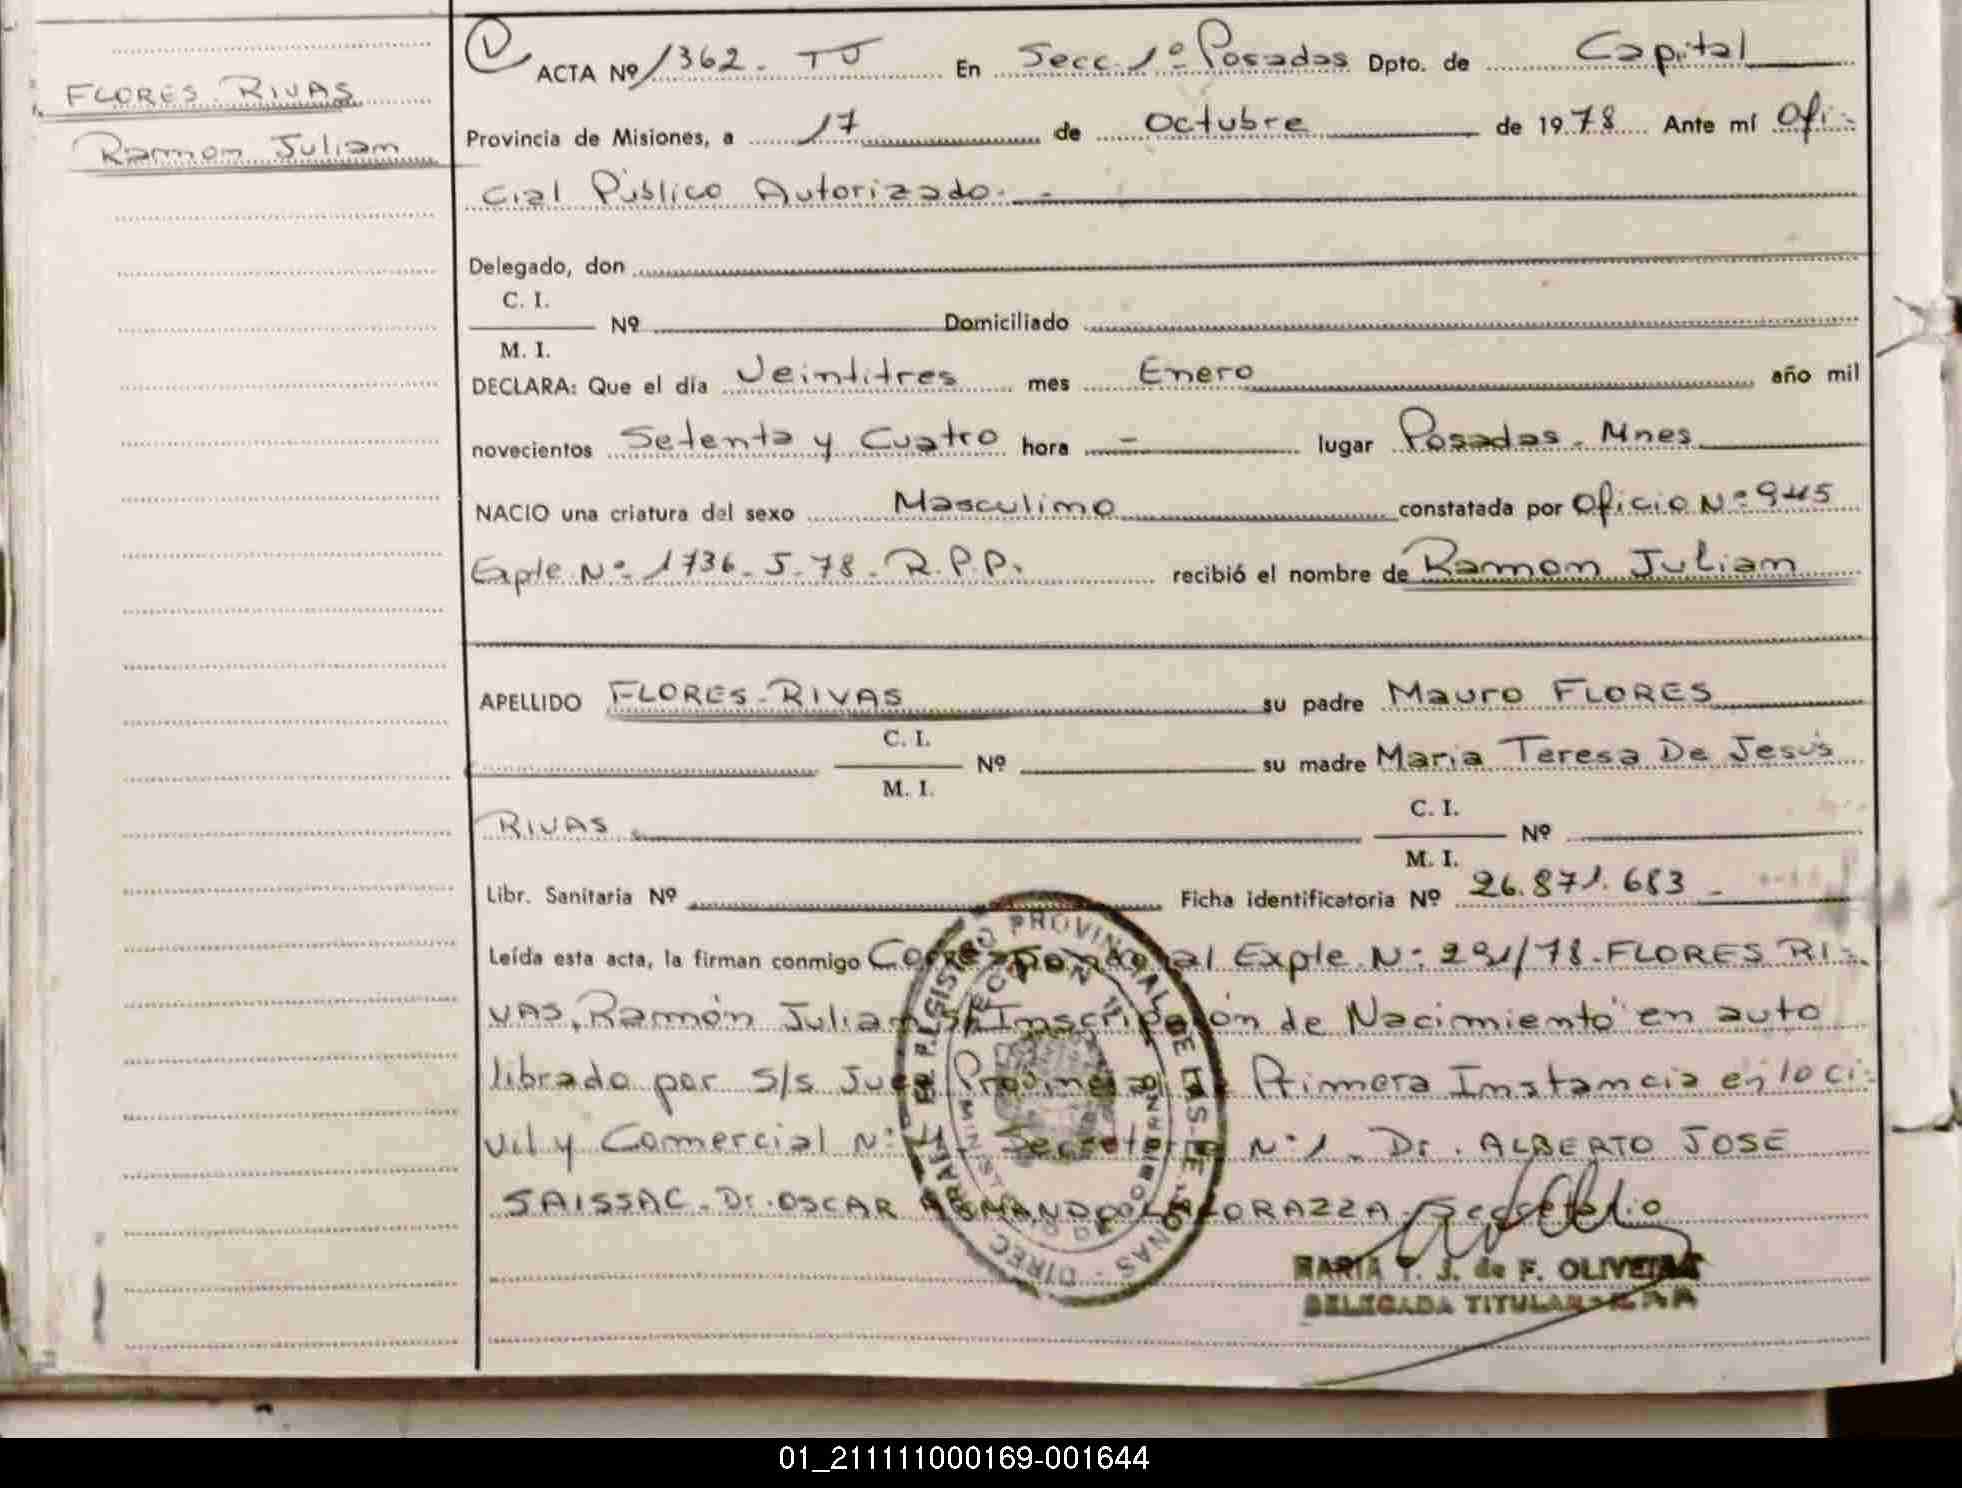 FLORES-RIVAS
Ramon Julian
ACTA Nº 1362- TJ En Secc. 1º Posadas Dpto. de Capital
Provincia de Misiones, a 17 de Octubre de 1978 Ante mí Ofi-
cial Público Autorizado. -
Delegado, don
C. I.
Nº Domiciliado
M. I.
DECLARA: Que el día Veintitres mes Enero año mil
novecientos Setenta y Cuatro hora - lugar Posadas - Mnes
NACIO una criatura del sexo Masculino constatada por Oficio Nº 945
Expte Nº 1736-J-78-R.P.P. recibió el nombre de Ramon Julian
APELLIDO FLORES-RIVAS su padre Mauro FLORES
C. I.
Nº su madre Maria Teresa De Jesús
M. I.
RIVAS
C. I.
Nº
M. I.
Libr. Sanitaria Nº Ficha identificatoria Nº 26.871.683 -
Leída esta acta, la firman conmigo Corresponde al Expte Nº 291/78-FLORES RI-
VAS, Ramón Julian Inscripción de Nacimiento" en auto
librado por S/s Juez Provincial de Primera Instancia en lo Ci-
vil y Comercial Nº Secretaria Nº 1 - Dr. ALBERTO JOSE
SAISSAC - Dr. OSCAR ARMANDO Secretario
REGISTRO PROVINCIAL DE LAS PERSONAS - DIREC
SECCION 1ª
MARIA T. J. de F. OLIVEIRA
DELEGADA TITULAR
01_211111000169-001644